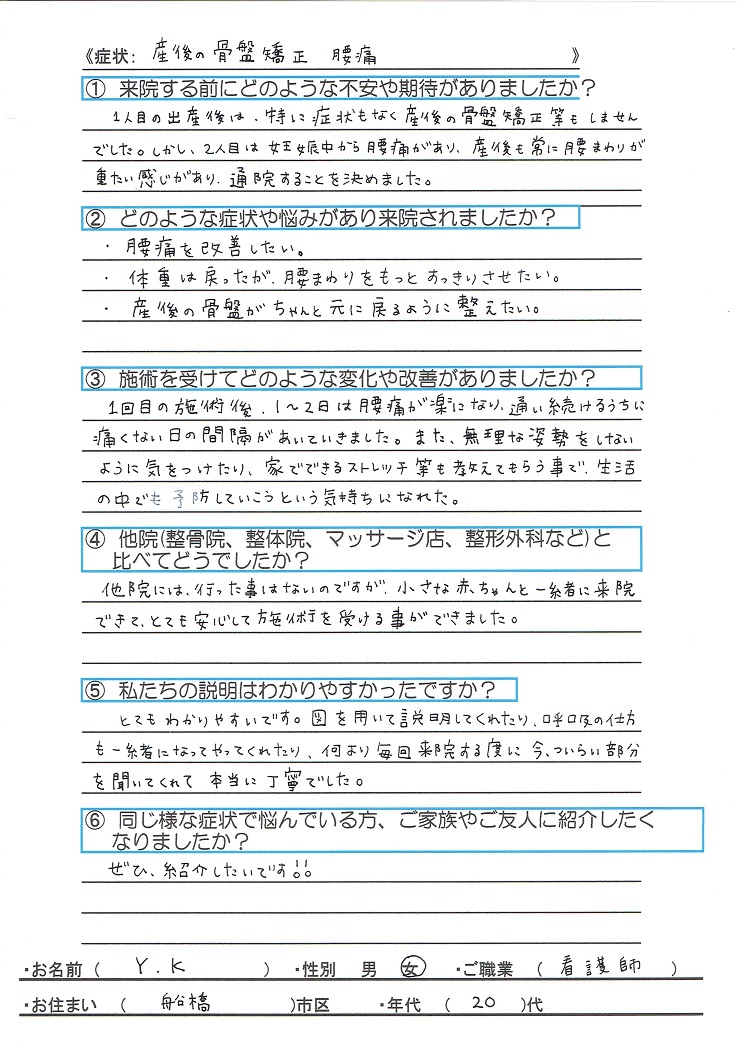 《症状: 産後の骨盤矯正 腰痛 》
① 来院する前にどのような不安や期待がありましたか？
1人目の出産後は、特に症状もなく産後の骨盤矯正等もしません
でした。しかし、2人目は妊娠中から腰痛があり、産後も常に腰まわりが
重たい感じがあり、通院することを決めました。
② どのような症状や悩みがあり来院されましたか？
・ 腰痛を改善したい。
・ 体重は戻ったが、腰まわりをもっとすっきりさせたい。
・ 産後の骨盤がちゃんと元に戻るように整えたい。
③ 施術を受けてどのような変化や改善がありましたか？
1回目の施術後、1～2日は腰痛が楽になり、通い続けるうちに
痛くない日の間隔があいていきました。また、無理な姿勢をしない
ように気をつけたり、家でできるストレッチ等も教えてもらう事で、生活
の中でも予防していこうという気持ちになれた。
④ 他院(整骨院、整体院、マッサージ店、整形外科など)と
比べてどうでしたか？
他院には、行った事はないのですが、小さな赤ちゃんと一緒に来院
できて、とても安心して施術を受ける事ができました。
⑤ 私たちの説明はわかりやすかったですか？
とてもわかりやすいです。図を用いて説明してくれたり、呼吸の仕方
も一緒になってやってくれたり、何より毎回来院する度に今、つらい部分
を聞いてくれて 本当に丁寧でした。
⑥ 同じ様な症状で悩んでいる方、ご家族やご友人に紹介したく
なりましたか？
ぜひ、紹介したいです!!
・お名前 ( Y.K ) ・性別 男 女 ・ご職業 ( 看護師 )
・お住まい ( 船橋 )市区 ・年代 ( 20 )代